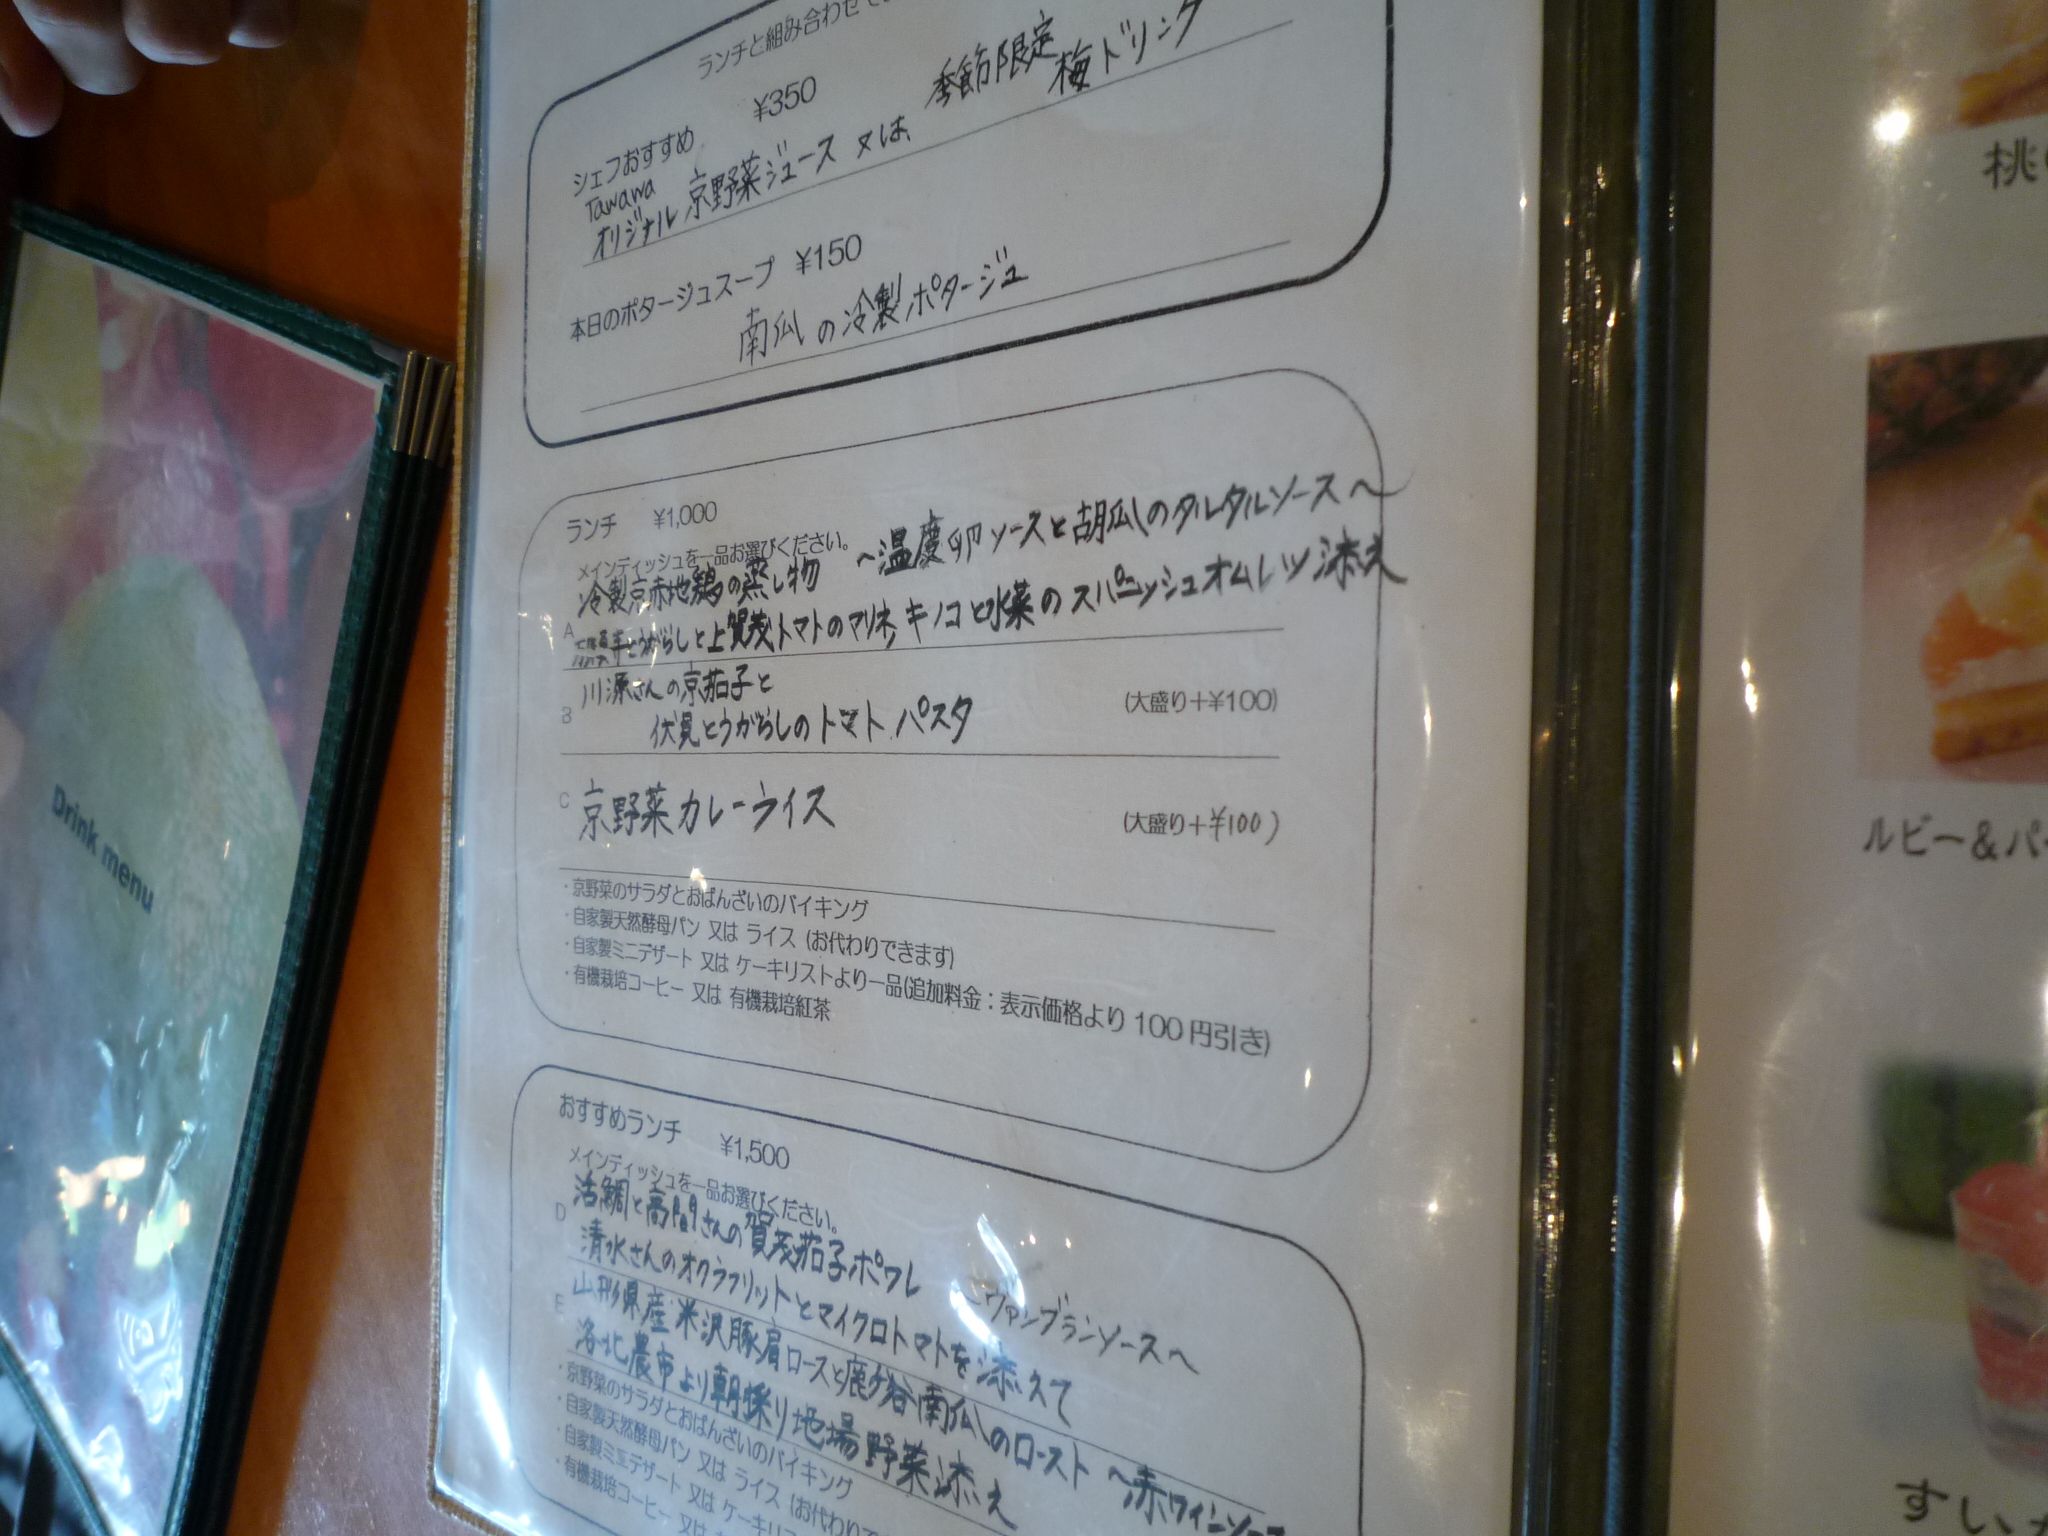 ランチと組み合わせて
シェフおすすめ ¥350
Tawawa
オリジナル 京野菜ジュース 又は 季節限定 梅ドリンク
本日のポタージュスープ ¥150
南瓜の冷製ポタージュ
ランチ ¥1,000
メインディッシュを一品お選びください。
A 冷製京赤地鶏の蒸し物 ~温度卵ソースと胡瓜のタルタルソース~
とうがらしと上賀茂トマトのマリネ キノコと水菜のスパニッシュオムレツ添え
B 川源さんの京茄子と
伏見とうがらしのトマトパスタ (大盛り+¥100)
C 京野菜カレーライス (大盛り+¥100)
・京野菜のサラダとおばんざいのバイキング
・自家製天然酵母パン 又は ライス (お代わりできます)
・自家製ミニデザート 又は ケーキリストより一品(追加料金:表示価格より100円引き)
・有機栽培コーヒー 又は 有機栽培紅茶
おすすめランチ ¥1,500
メインディッシュを一品お選びください。
D 活鯛と高間さんの賀茂茄子ポワレ ~ヴァンブランソース~
清水さんのオクラフリットとマイクロトマトを添えて
E 山形県産 米沢豚肩ロースと鹿ケ谷南瓜のロースト ~赤ワインソース
洛北農市より朝採り地場野菜添え
・京野菜のサラダとおばんざいのバイキング
・自家製天然酵母パン 又は ライス (お代わりで
・自家製ミニデザート 又は ケーキリス
・有機栽培コーヒー 又は
Drink menu
桃
ルビー&パ
すい